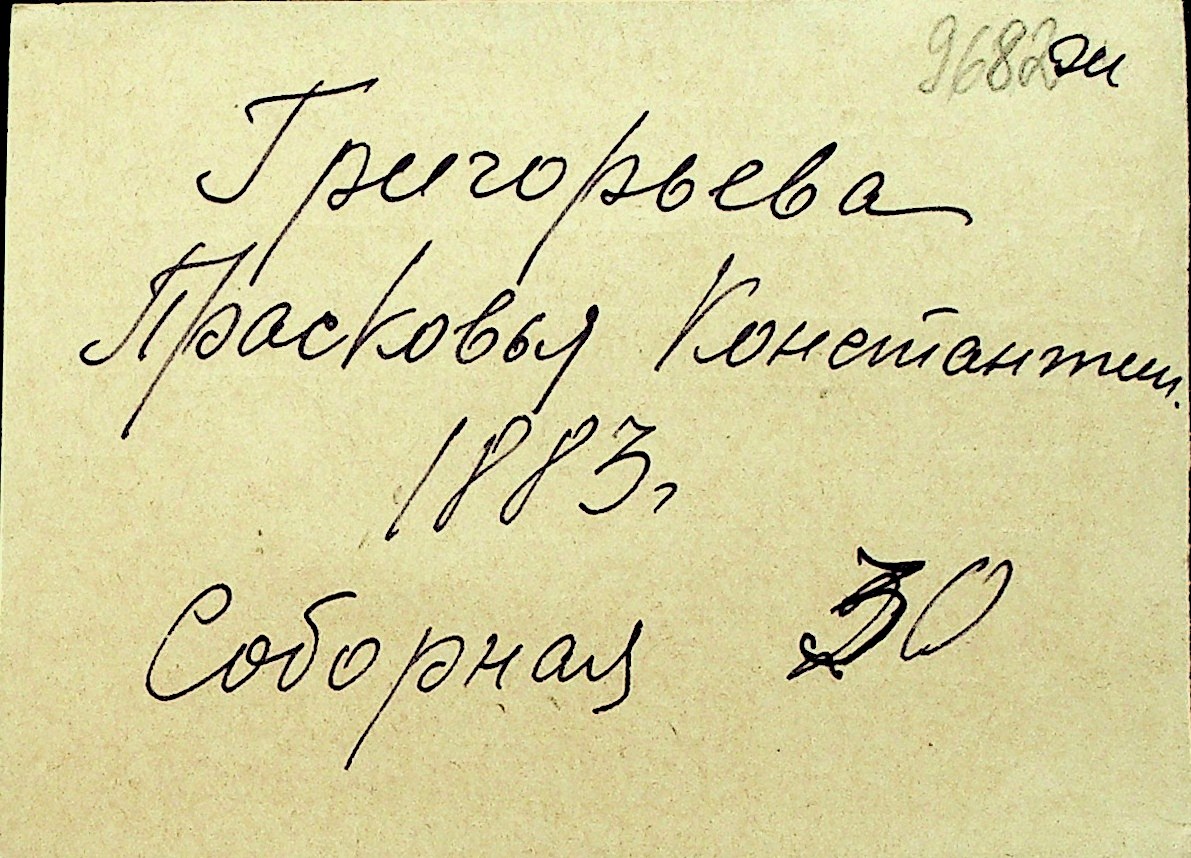 9682 эи
Григорьева
Прасковья Константин.
1883г
Соборная 30